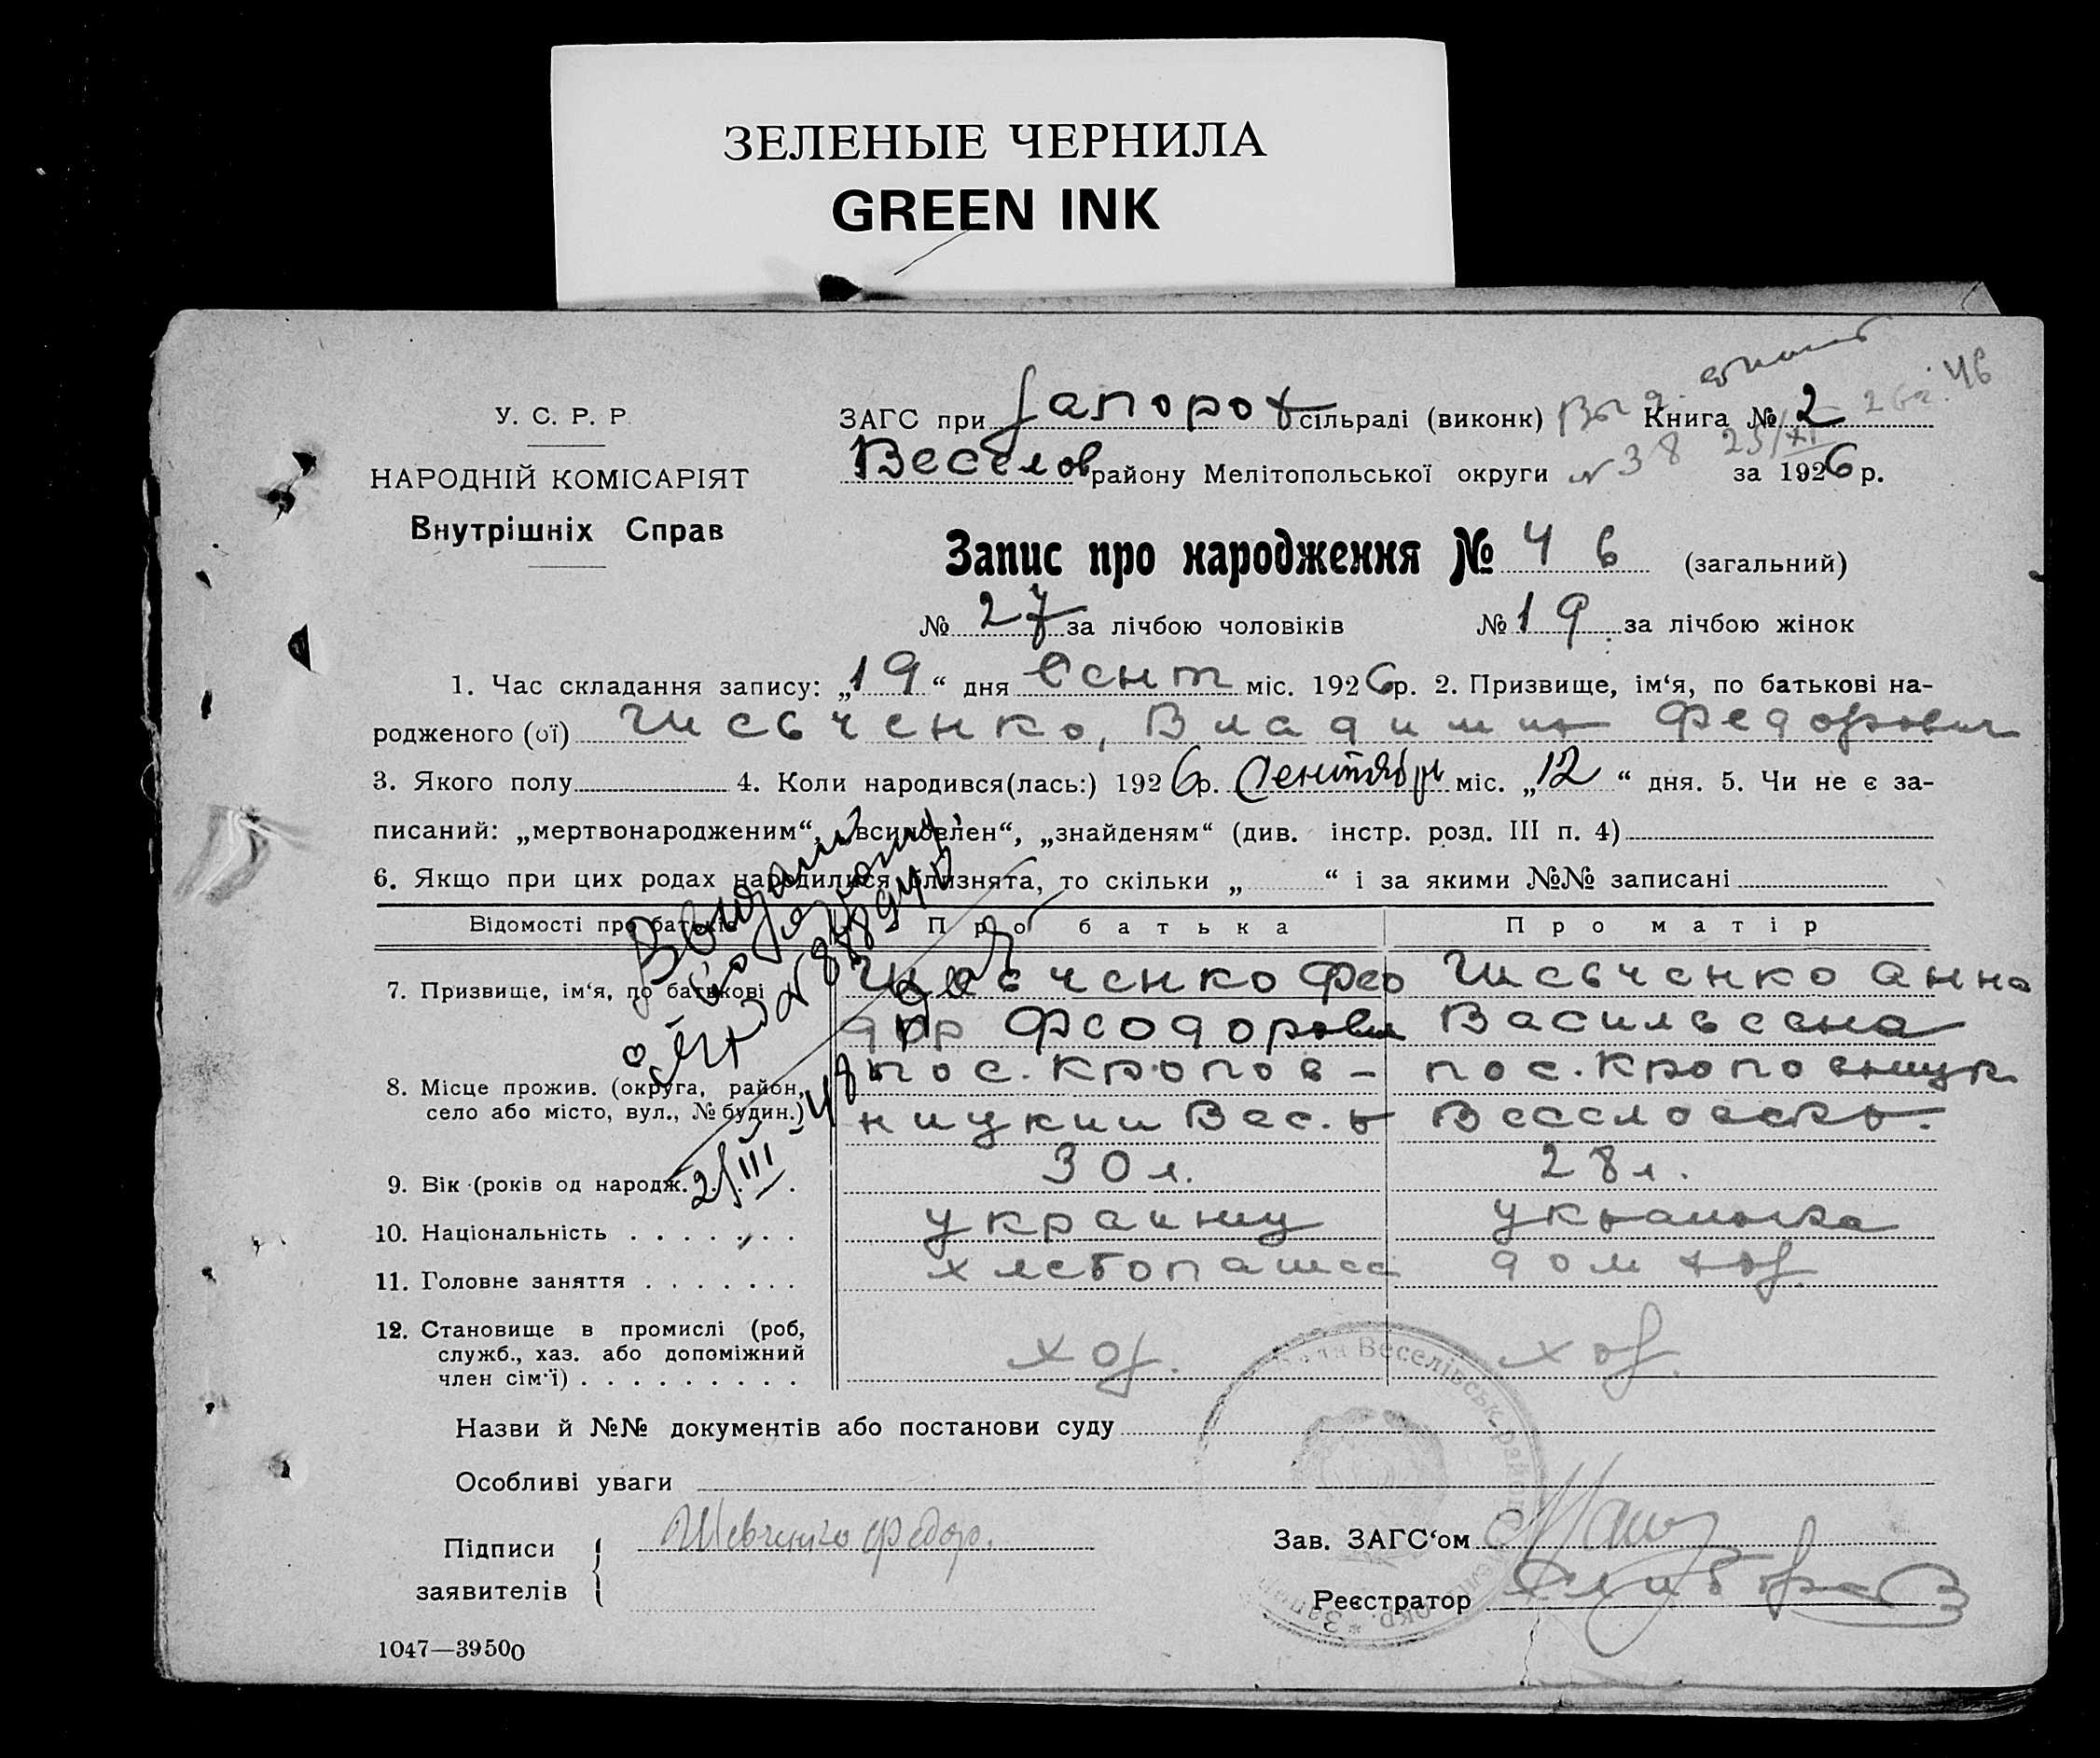 ЗЕЛЕНЫЕ ЧЕРНИЛА
GREEN INK
У. С. Р. Р.
НАРОДНІЙ КОМІСАРІЯТ
Внутрішніх Справ
ЗАГС при Запорож сільраді (виконк) Книга № 2
Веселов району Мелітопольської округи № 38 25/XI за 1926 р.
Запис про народження № 46 (загальний)
№ 27 за лічбою чоловіків № 19 за лічбою жінок
1. Час складання запису: „19“ дня Сент міс. 1926 р. 2. Призвище, ім‘я, по батькові на-
родженого (ої) Шевченко, Владимир Федорович
3. Якого полу 4. Коли народився(лась:) 1926 р. Сентябрь міс. „12“ дня. 5. Чи не є за-
писаний: „мертвонародженим“, „всиновлен“, „знайденям“ (див. інстр. розд. III п. 4)
6. Якщо при цих родах народилися близнята, то скільки „ “ і за якими №№ записані
Відомості про батьків Про батька Про матір
7. Призвище, ім‘я, по батькові Шевченко Фео Шевченко Анна
дор Феодорови Васильевна
8. Місце прожив. (округа, район, пос. Кропов- пос. Кроповницк
село або місто, вул., № будин.) ницкий Вес. р Веселовско.
9. Вік (років од народж. 30 л. 28 л.
21/III - 48
10. Національність украинц украинка
11. Головне заняття хлебопашес дом хоз
12. Становище в промислі (роб,
служб., хаз. або допоміжний хоз. хоз.
член сім‘ї)
Назви й №№ документів або постанови суду
Особливі уваги
Підписи Шевченко Федор. Зав. ЗАГС‘ом
заявителів Реєстратор
1047—39500